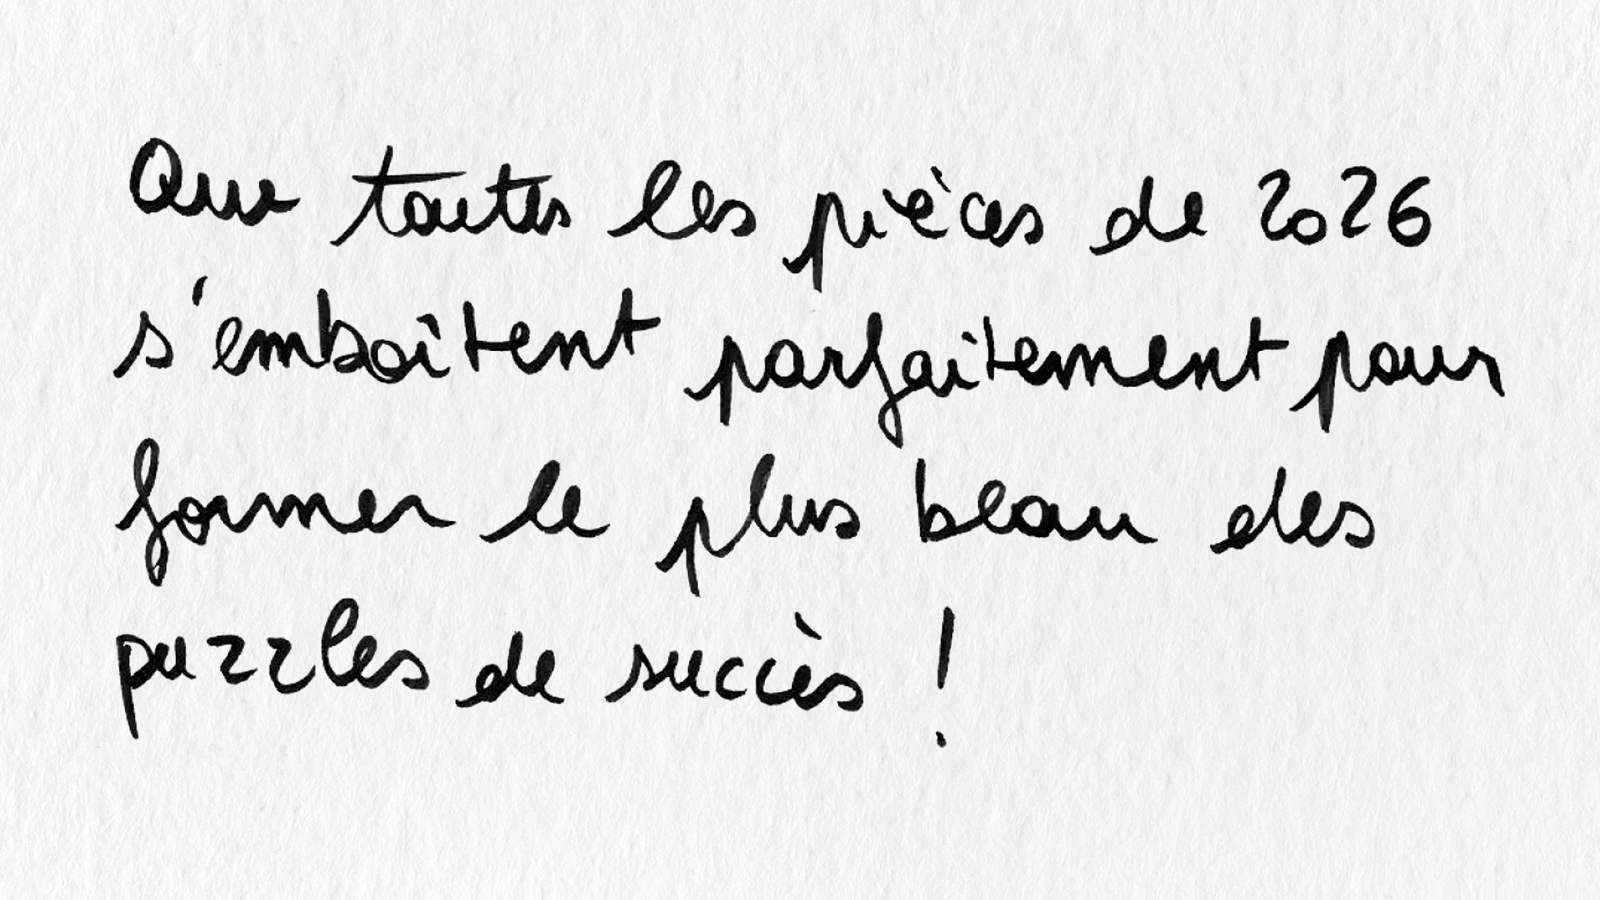 Que toutes les pièces de 2026
s'emboîtent parfaitement pour
former le plus beau des
puzzles de succès !